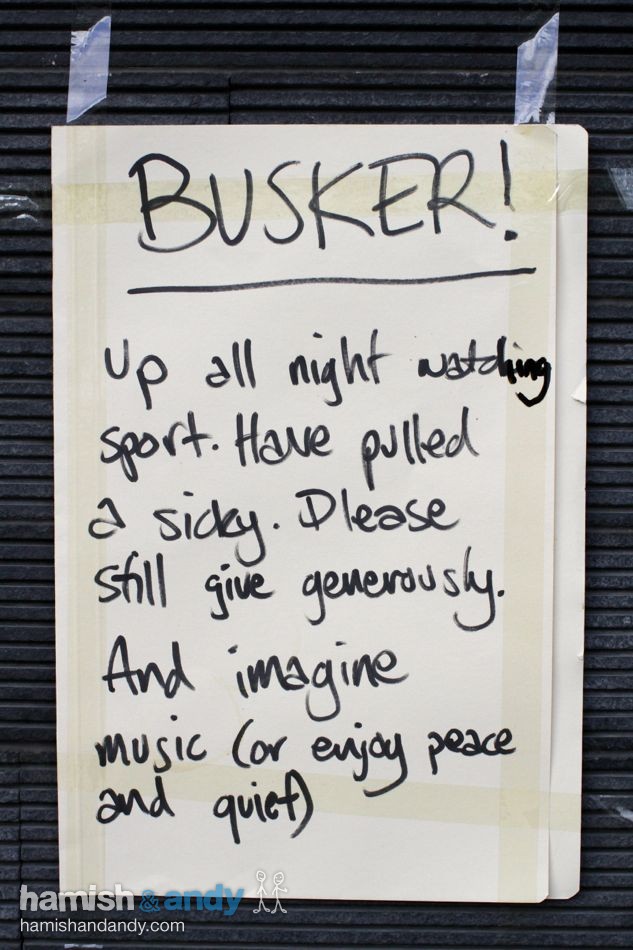 BUSKER!
Up all night watching
sport. Have pulled
a sicky. Please
still give generously.
And imagine
music (or enjoy peace
and quiet)
hamish & andy
hamishandandy.com